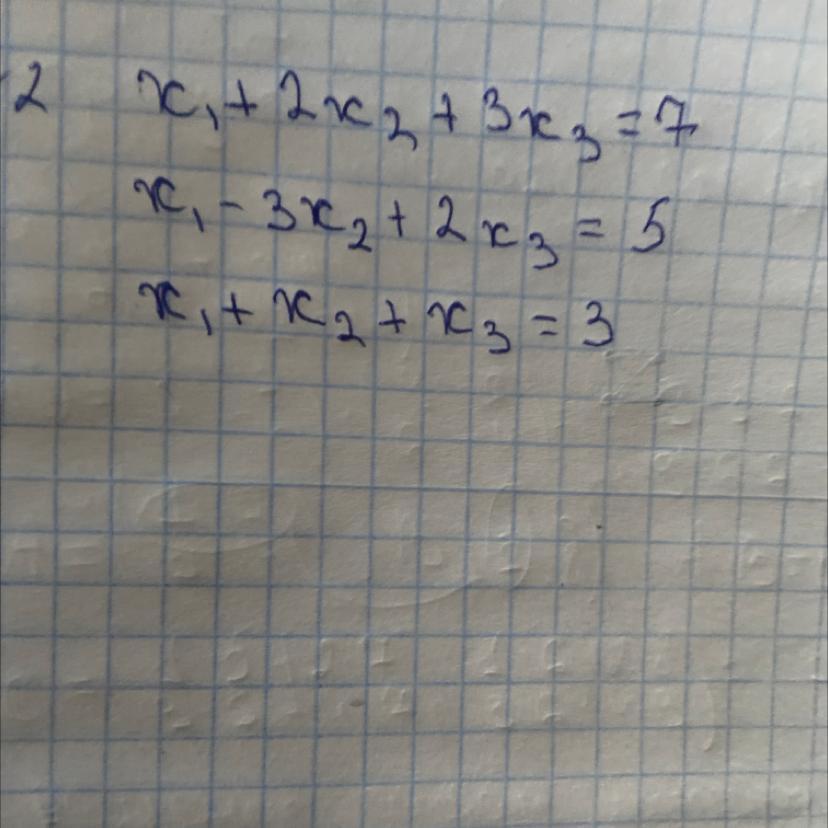 2 x₁ + 2x₂ + 3x₃ = 7
x₁ - 3x₂ + 2x₃ = 5
x₁ + x₂ + x₃ = 3